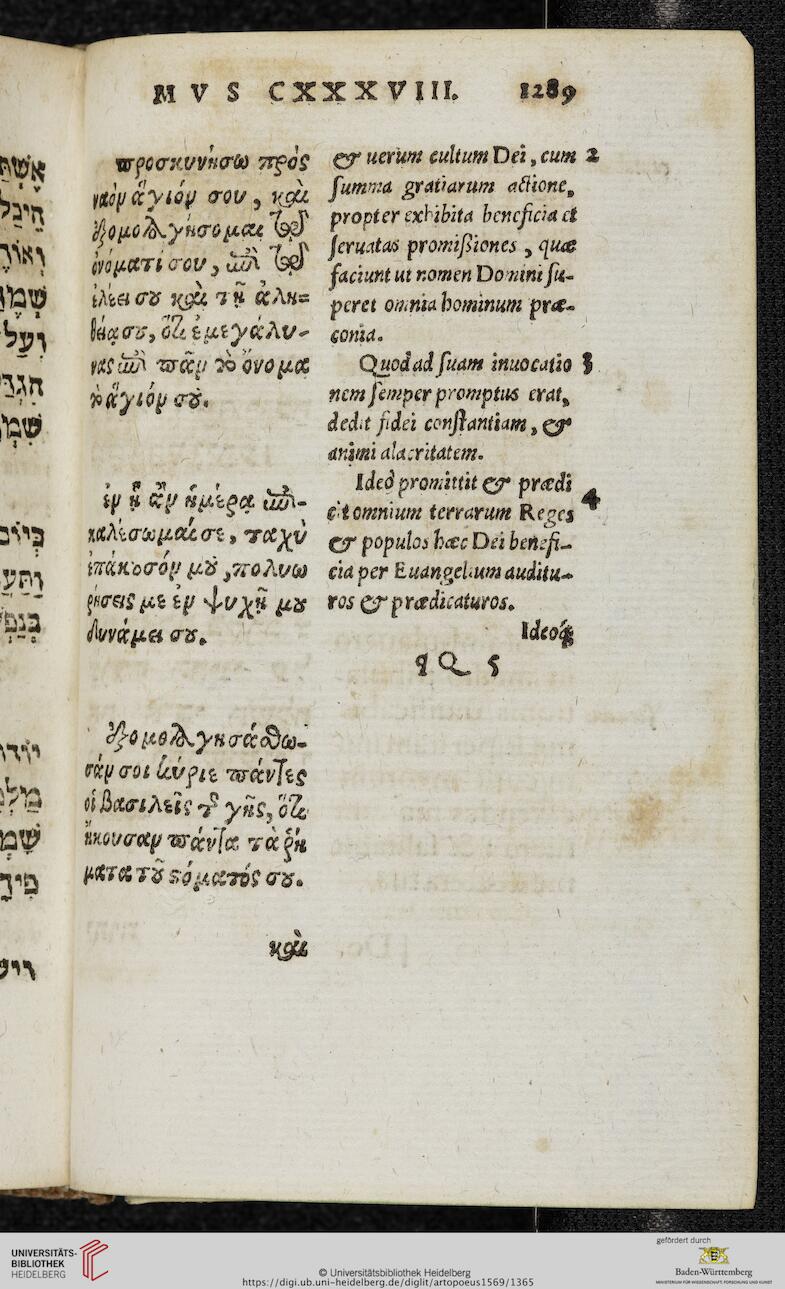 MVS CXXXVIII. 1289
προσκυνήσω πρός
ναὸν ἅγιόν σου, καὶ
ἐξομολογήσομαι ἐπὶ τῷ
ὀνόματί σου, ἐπὶ τῷ
ἐλέει σου καὶ τῇ ἀλη=
θείᾳ σου, ὅτι ἐμεγάλυ-
νας ἐπὶ πᾶν τὸ ὄνομα
τὸ ἅγιόν σου.
ἐν ᾗ ἂν ἡμέρᾳ ἐπι-
καλέσωμαί σε, ταχὺ
ἐπάκουσόν μου, πολυω
ρήσεις με ἐν ψυχῇ μου
δυνάμει σου.
ἐξομολογησάσθω-
σάν σοι κύριε πάντες
οἱ βασιλεῖς τῆς γῆς, ὅτι
ἤκουσαν πάντα τὰ ῥή
ματα τοῦ στόματός σου.
καὶ
& uerum cultum Dei, cum 2
summa gratiarum actione,
propter exhibita beneficia et
seruatas promißiones, quæ
faciunt ut nomen Domini su-
peret omnia hominum præ-
conia.
Quod ad suam inuocatio 3
nem semper promptus erat,
dedit fidei constantiam, &
animi alacritatem.
Ideo promittit & prædi
cit omnium terrarum Reges 4
& populos hæc Dei benefi-
cia per Euangelium auditu-
ros & prædicaturos.
Ideoq;
q Q 5
אֶשְׁתַּ
הֵיכַל
וְאוֹדֶ
שְׁמֶךָ
וְעַל
הִגְדַּ
שִׁמְ
בְּיוֹם
וַתַּעֲ
בְנַפְ
יוֹדוּ
מַלְ
שָׁמְ
פִיךָ
וְיָשִׁ
UNIVERSITÄTS-
BIBLIOTHEK
HEIDELBERG
© Universitätsbibliothek Heidelberg
https://digi.ub.uni-heidelberg.de/diglit/artopoeus1569/1365
gefördert durch
Baden-Württemberg
MINISTERIUM FÜR WISSENSCHAFT, FORSCHUNG UND KUNST